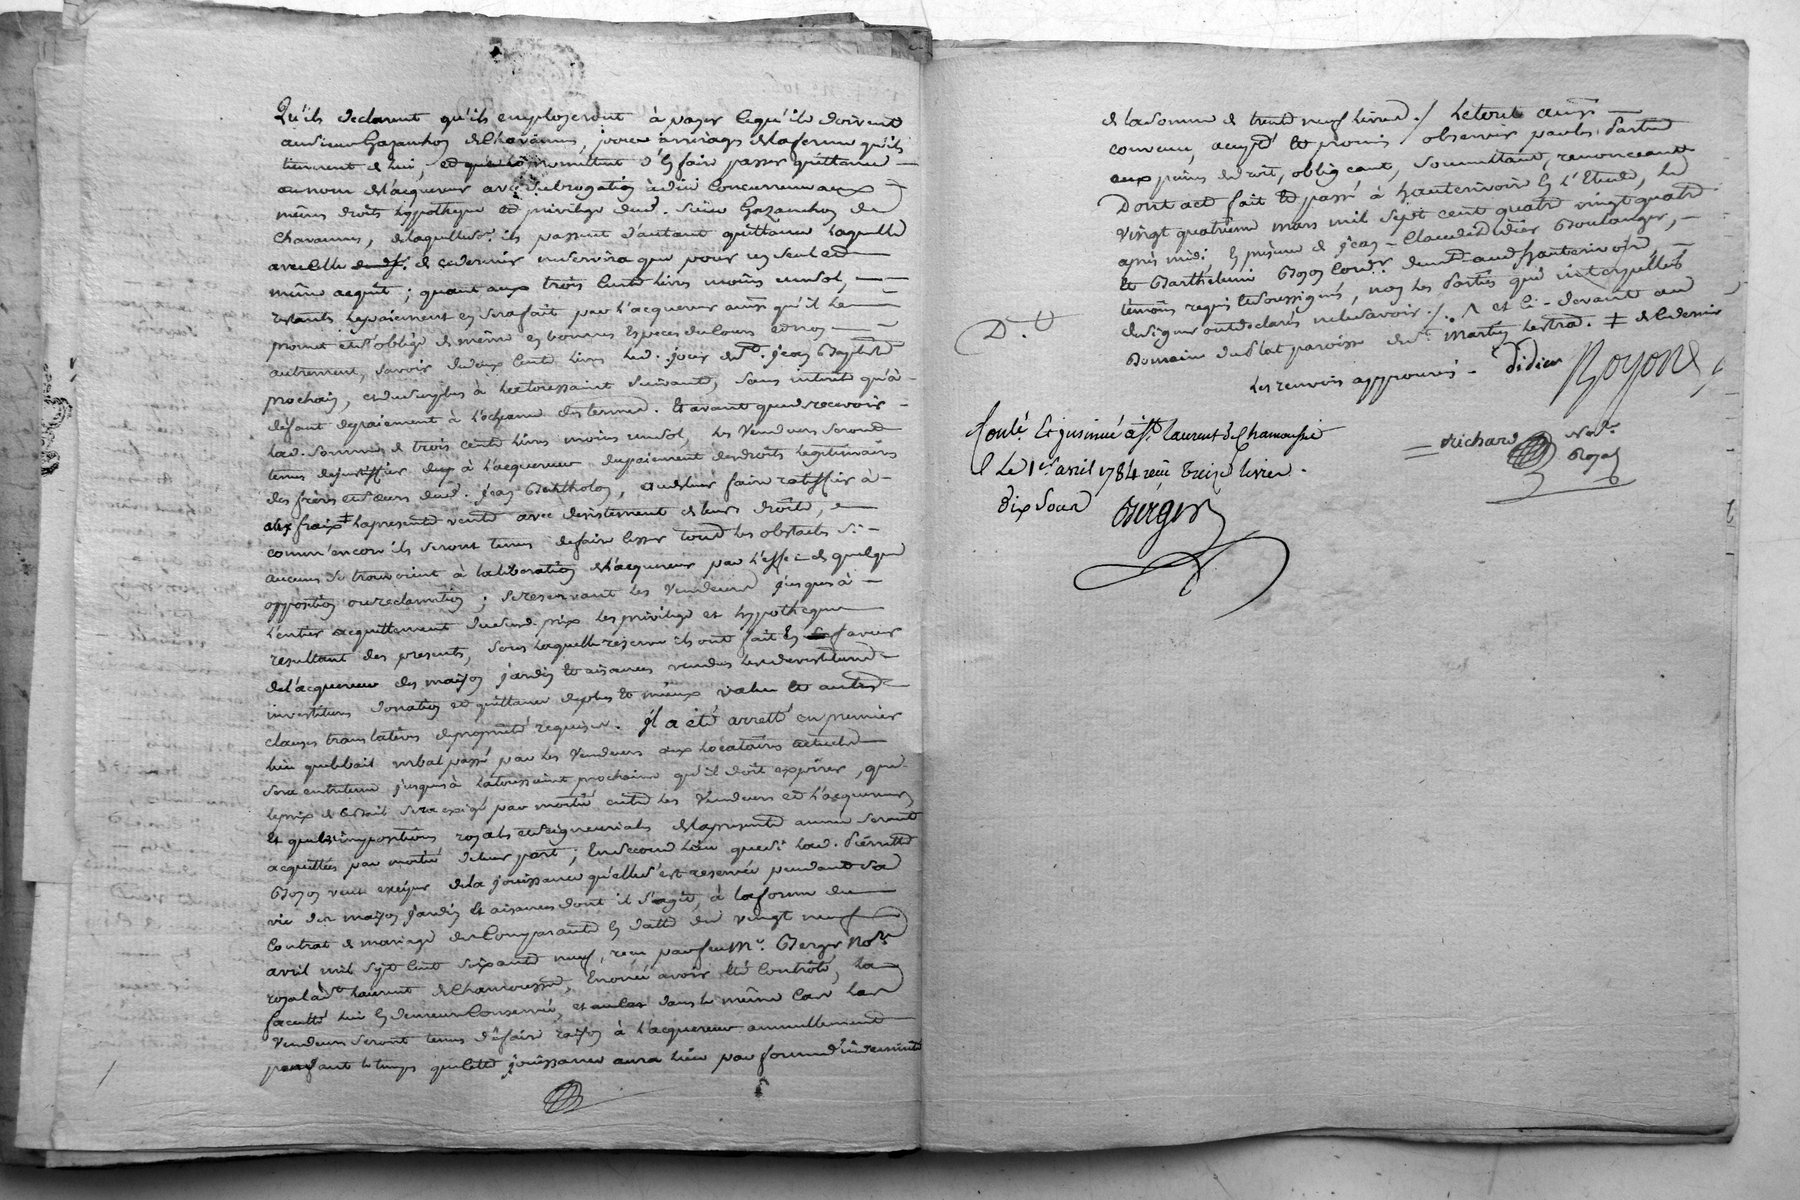 Qu'ils declarent qu'ils employeront à payer ce qu'ils doivent
au sieur Gazanchon de Chavannes, pour arrérage de la ferme qu'ils
tiennent de lui, et promettent d'en faire passer quittance
au nom de l'acquereur avec subrogation à due concurrence aux
mêmes droits hypotheque et privilege dud. sieur Gazanchon de
Chavannes, de laquelle s. ils passent d'autant quittance laquelle
avec celle de ce dernier ne servira que pour un seul et
même acquit ; quant aux trois cents livres moins un sol,
restants le paiement en sera fait par l'acquereur ainsi qu'il le
promet et s'oblige de même en bonnes especes du cours et non
autrement, savoir de deux cents livres led. jour de St. jean Baptiste
prochain, et du surplus à la toussaint suivante, sans interêt qu'à
défaut de paiement à l'echeance des termes. Et avant que de recevoir
lad. somme de trois cents livres moins un sol, les Vendeurs seront
tenus de justiffier à l'acquereur du paiement des droits legitimaires
des freres et soeurs dud. jean Berthholon, et de leur faire ratiffier à
frais la presente vente avec desistement de leurs droits,
comm'encore ils seront tenus de faire cesser tous les obstacles si
aucuns se trouvoient à la liberation de l'acquereur par l'effet de quelque
opposition ou reclamation ; se reservant les Vendeurs jusques à
l'entier acquittement dud. prix les privilege et hypotheque
resultant des presents, sous laquelle reserve ils ont fait en faveur
de l'acquereur des maison jardin et aisances vendus les devestitures
investitures donation et quittance de plus et mieux value et autres
clauses translatives de proprieté requises. Il a été arretté en premier
lieu que le bail verbal passé par les Vendeurs aux locataires actuels
sera entretenu jusques à la toussaint prochaine qu'il doit expirer, que
le prix de ce bail sera exigé par moitié entre les Vendeurs et l'acquereur
et que les impositions royales et seigneuriales de la presente année seront
acquittées par moitié de leur part ; En second lieu que si lad. Pierrette
Boyon veut exiger de la jouissance qu'elle s'est reservée pendant sa
vie des maison jardin et aisances dont il s'agit, à la forme du
Contrat de mariage des Comparants en datte du vingt neuf
avril mil sept cent soixante neuf, reçu par feu Me. Berger Nore.
royal à St. Laurent de Chamousset, Enoncé avoir été Contrôlé, la
faculté lui en demeure Conservée, et au cas dans le même Cas les
Vendeurs seront tenus de faire raison à l'acquereur annuellement
pendant le temps que cette jouissance aura lieu par forme d'indemnité
de la somme de trente neuf livres. / Le tout ainsi
convenu, accepté et promis observer par les Parties
aux peines de droit, obligeant, soumettant, renonceant
Dont acte fait et passé à hauterivoire en l'Etude, le
vingt quatrieme mars mil sept cent quatre vingt quatre
après midi En présence de jean-Claude Didier Boulanger,
et Barthelemi Boyon Cordr. demt. aud. hauterivoire,
témoins requis et soussignés, non les Parties qui interpellées
de signer ont déclarés ne le savoir /.
Domaine du Plat paroisse de St. Martin Lestra. ‡ de ce dernier
D.t
les renvois approuvés. Didier Boyon
Conlé. Et insinué à St. Laurent de Chamousset
Le 1er. avril 1784 reçu treize livres
dix sous Berger
Richard Nore.
Royal